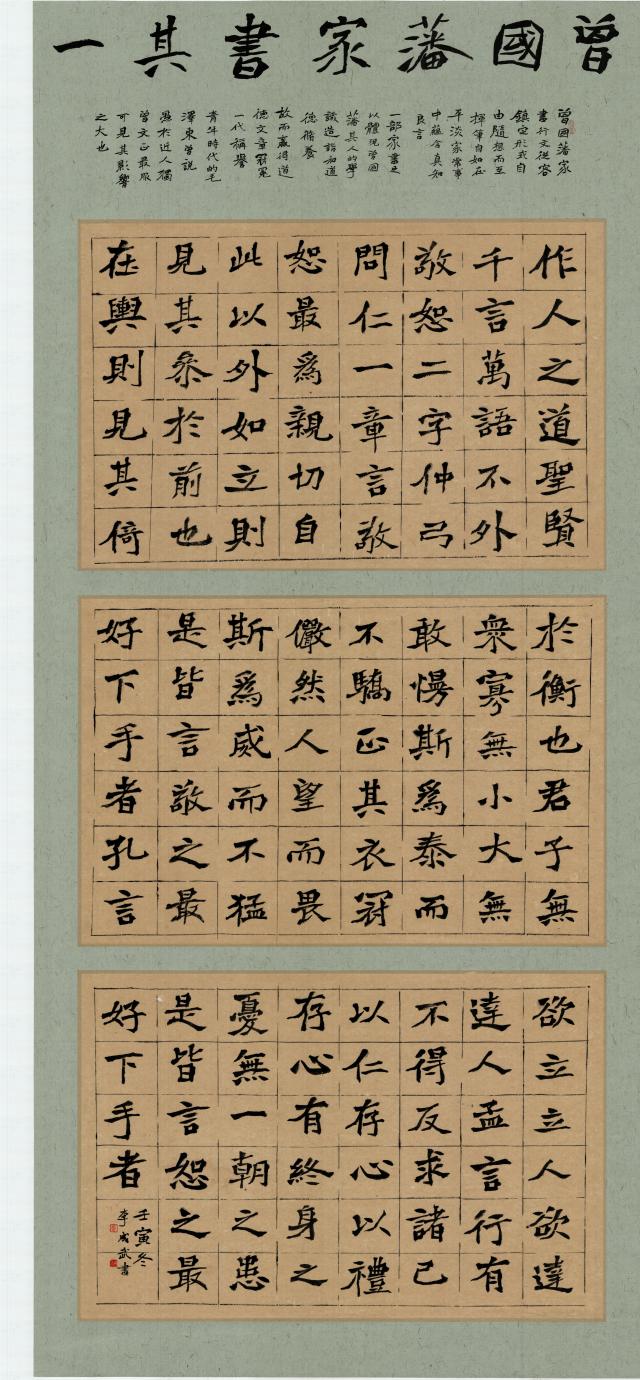 曾國藩家書其一
曾國藩家
書行文從容
鎮定形式自
由隨想而至
揮筆自如在
平淡家常事
中蘊含真知
良言
一部家書足
以體現曾國
藩其人的學
識造詣和道
德脩養
故而贏得道
德文章冠冕
一代稱譽
青年時代的毛
澤東曾說
愚於近人獨
曾文正最服
可見其影響
之大也
作人之道聖賢
千言萬語不外
敬恕二字仲弓
問仁一章言敬
恕最爲親切自
此以外如立則
見其叅於前也
在輿則見其倚
於衡也君子無
衆寡無小大無
敢慢斯爲泰而
不驕正其衣冠
儼然人望而畏
斯爲威而不猛
是皆言敬之最
好下手者孔言
欲立立人欲達
達人孟言行有
不得反求諸己
以仁存心以禮
存心有終身之
憂無一朝之患
是皆言恕之最
好下手者
壬寅冬
李成武書